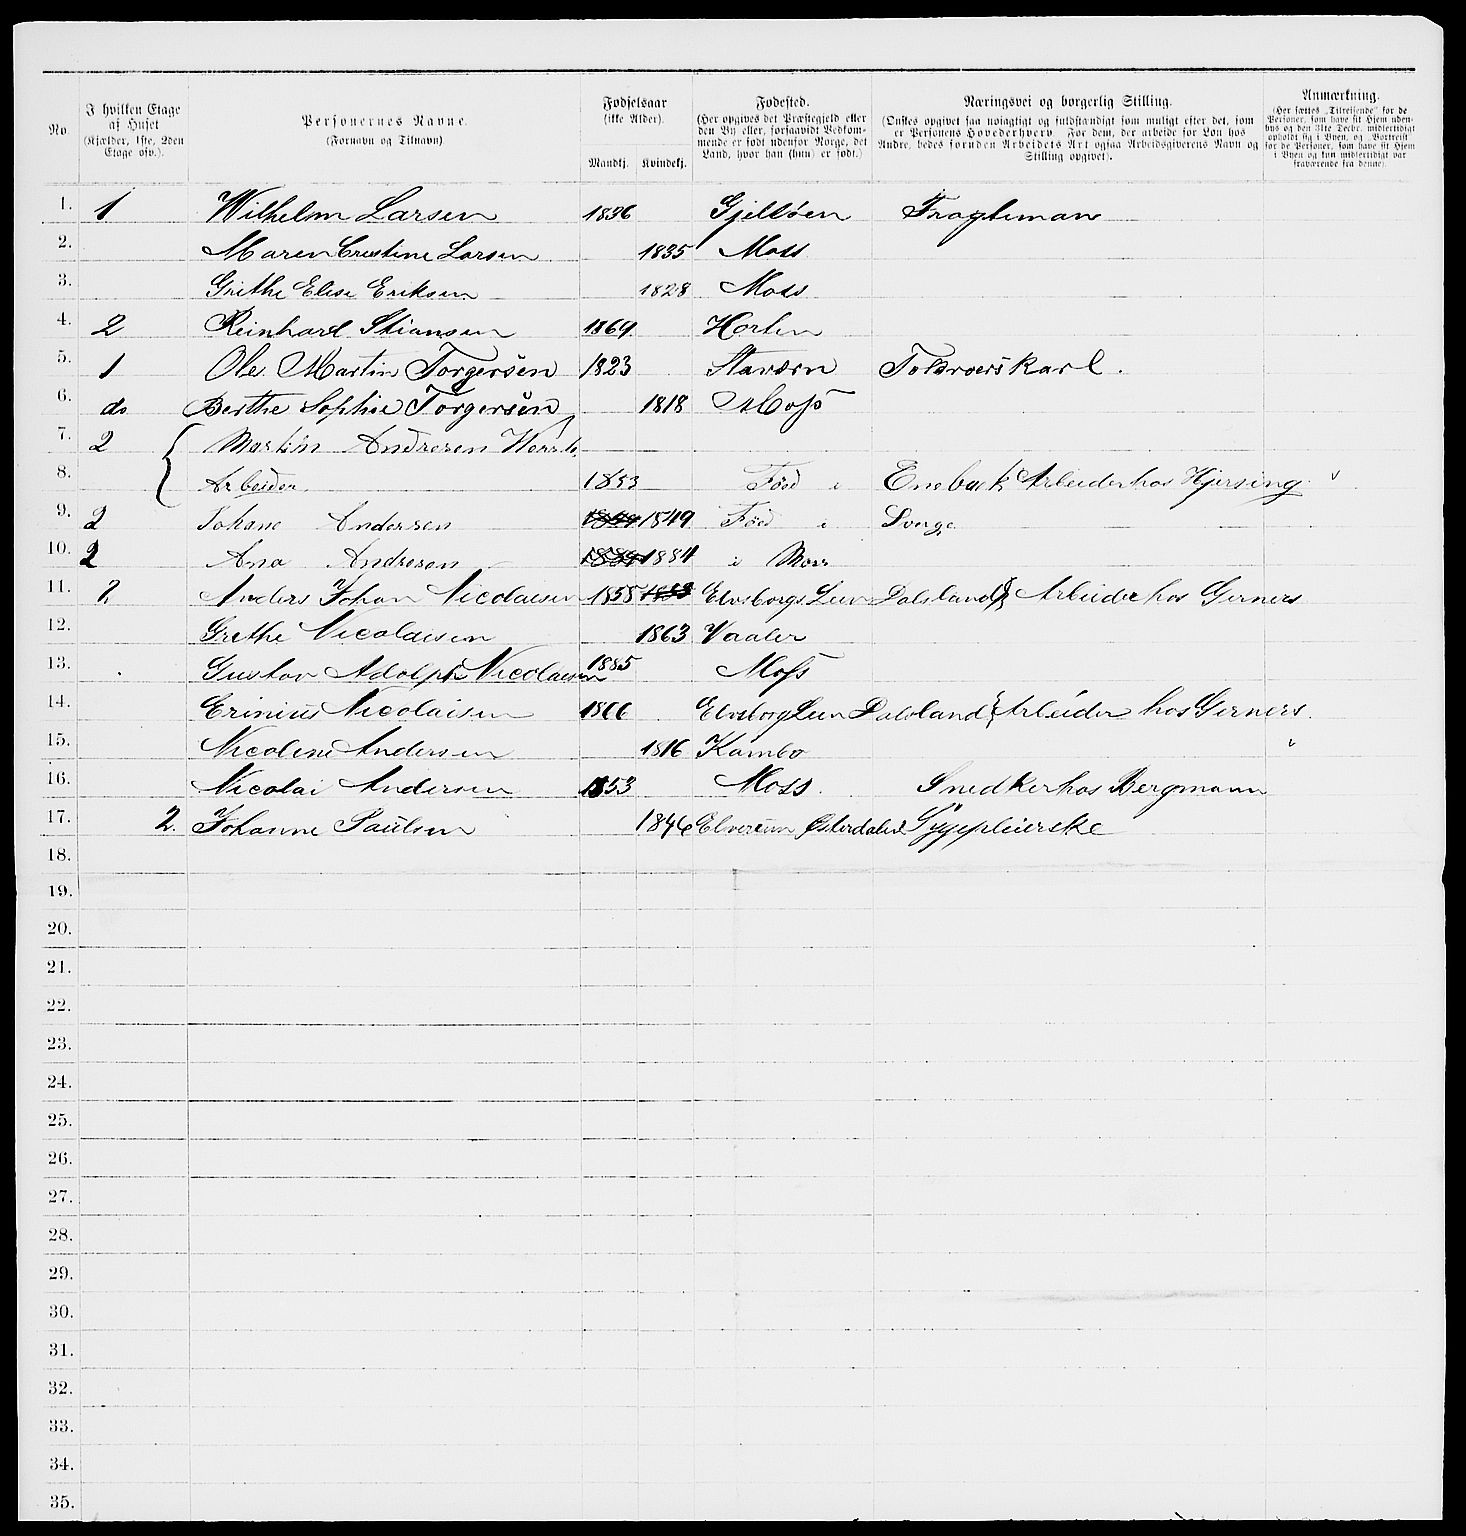 No
I hvilken Etage af Huset (Kjælder, 1ste, 2den Etage osv.).
Personernes Navne. (Fornavn og Tilnavn)
Fødselsaar (ikke Alder).
Mandkj. Kvindekj.
Fødested. (Her opgives det Præstegjeld eller den By eller, forsaavidt Vedkommende er født udenfor Norge, det Land, hvor han (hun) er født.)
Næringsvei og borgerlig Stilling. (Ønskes opgivet saa nøiagtigt og fuldstændigt som muligt efter det, som er Personens Hovederhverv. For dem, der arbeide for Løn hos Andre, bedes foruden Arbeidets Art ogsaa Arbeidsgiverens Navn og Stilling opgivet).
Anmærkning. (Her sættes „Tilreisende" for de Personer, som have sit Hjem udenbys og den 31te Decbr. midlertidigt opholdt sig i Byen, og „Bortreist" for de Personer, som have sit Hjem i Byen og kun midlertidigt var fraværende fra denne).
1. 1 Wilhelm Larsen 1836 Gjelløen Fragteman
2. Maren Crestine Larsen 1835 Moss
3. Grithe Elise Eriksen 1828 Moss
4. 2 Reinhard Stiansen 1869 Horten
5. 1 Ole Martin Torgersen 1823 Stavern Toldroerskarl.
6. do Berthe Sophie Torgersen 1818 Moss
7. 2 Martin Andresen
8. Arbeider 1853 Föd i Enebak Arbeider hos Hjersing
9. 2 Johane Andersen 1849 Föd i Sverge
10. 2 Ana Andresen 1884 i Moss
11. 2 Anders Johan Nicolaisen 1858 Elvsborgs Leen Dalsland Arbeider hos Gerners
12. Grethe Nicolaisen 1863 Vaaler
13. Gustav Adolph Nicolaisen 1885 Moss
14. Erinius Nicolaisen 1866 Elvsborg Leen Dalsland Arbeider hos Gerners.
15. Nicoline Andersen 1816 Kambo
16. Nicolai Andersen 1853 Moss. Snedker hos Bergmann
17. 2. Johanne Paulsen 1846 Elverum Østerdalen Sygepleierske
18.
19.
20.
21.
22.
23.
24.
25.
26.
27.
28.
29.
30.
31.
32.
33.
34.
35.